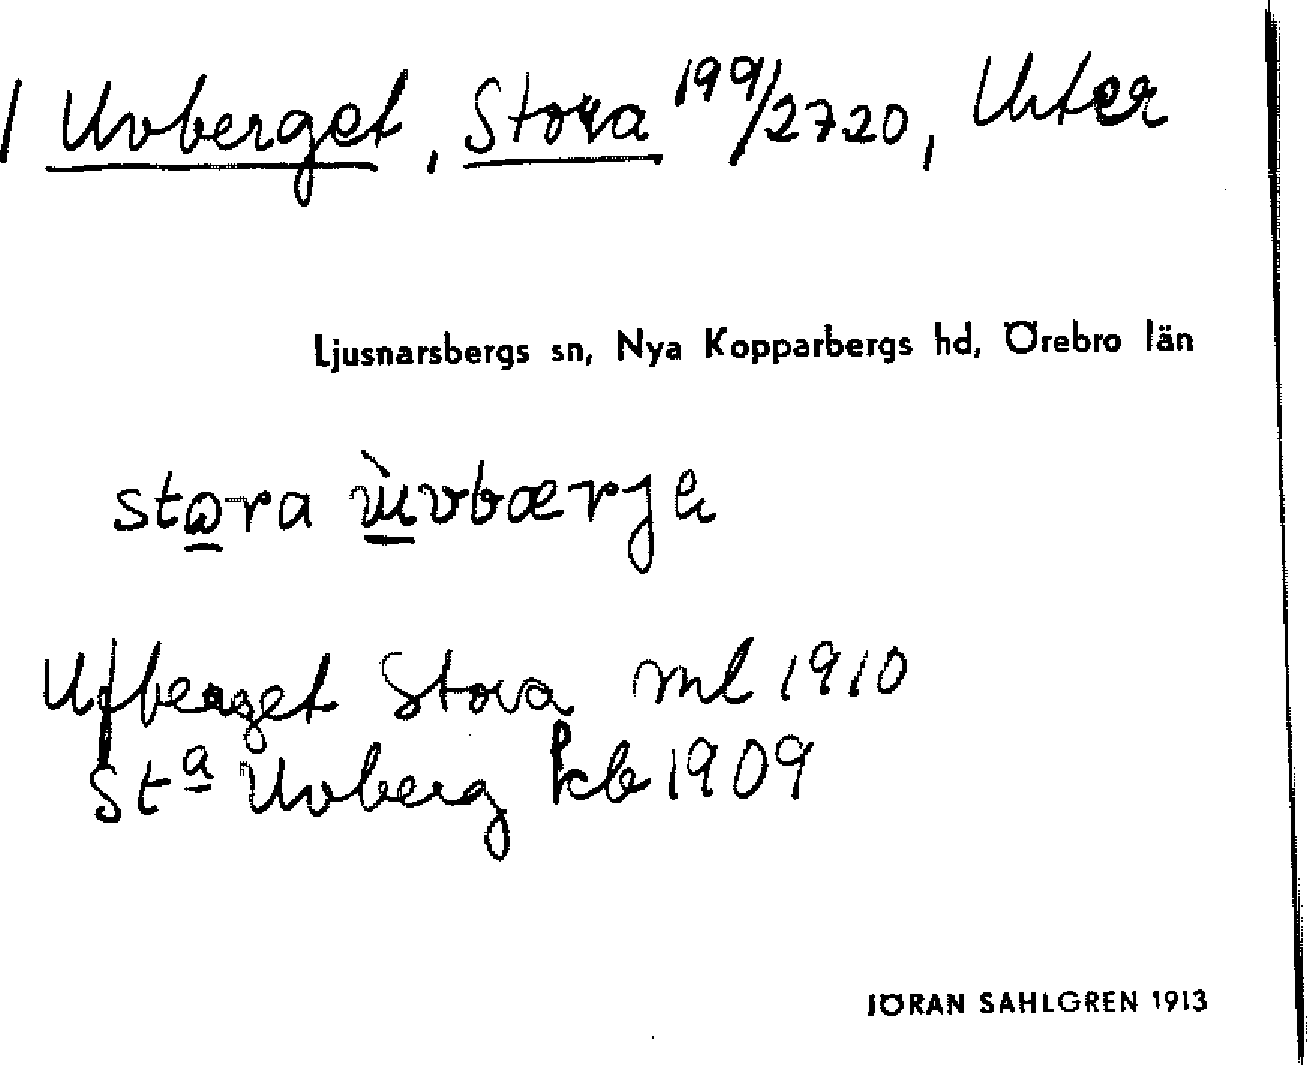 / Uvberget, Stora 199/2720, Uvter
Ljusnarsbergs sn, Nya Kopparbergs hd, Örebro län
stora ùvbærje
Ufberget Stora ml 1910
Stª Uvberg kb 1909
JÖRAN SAHLGREN 1913